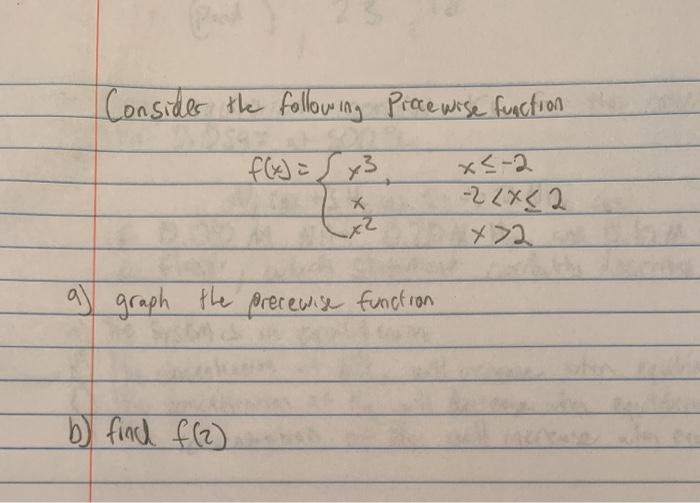 Consider the following Piecewise function
f(x) = { x³, x ≤ -2
x -2 < x ≤ 2
x² x > 2
a) graph the piecewise function
b) find f(2)